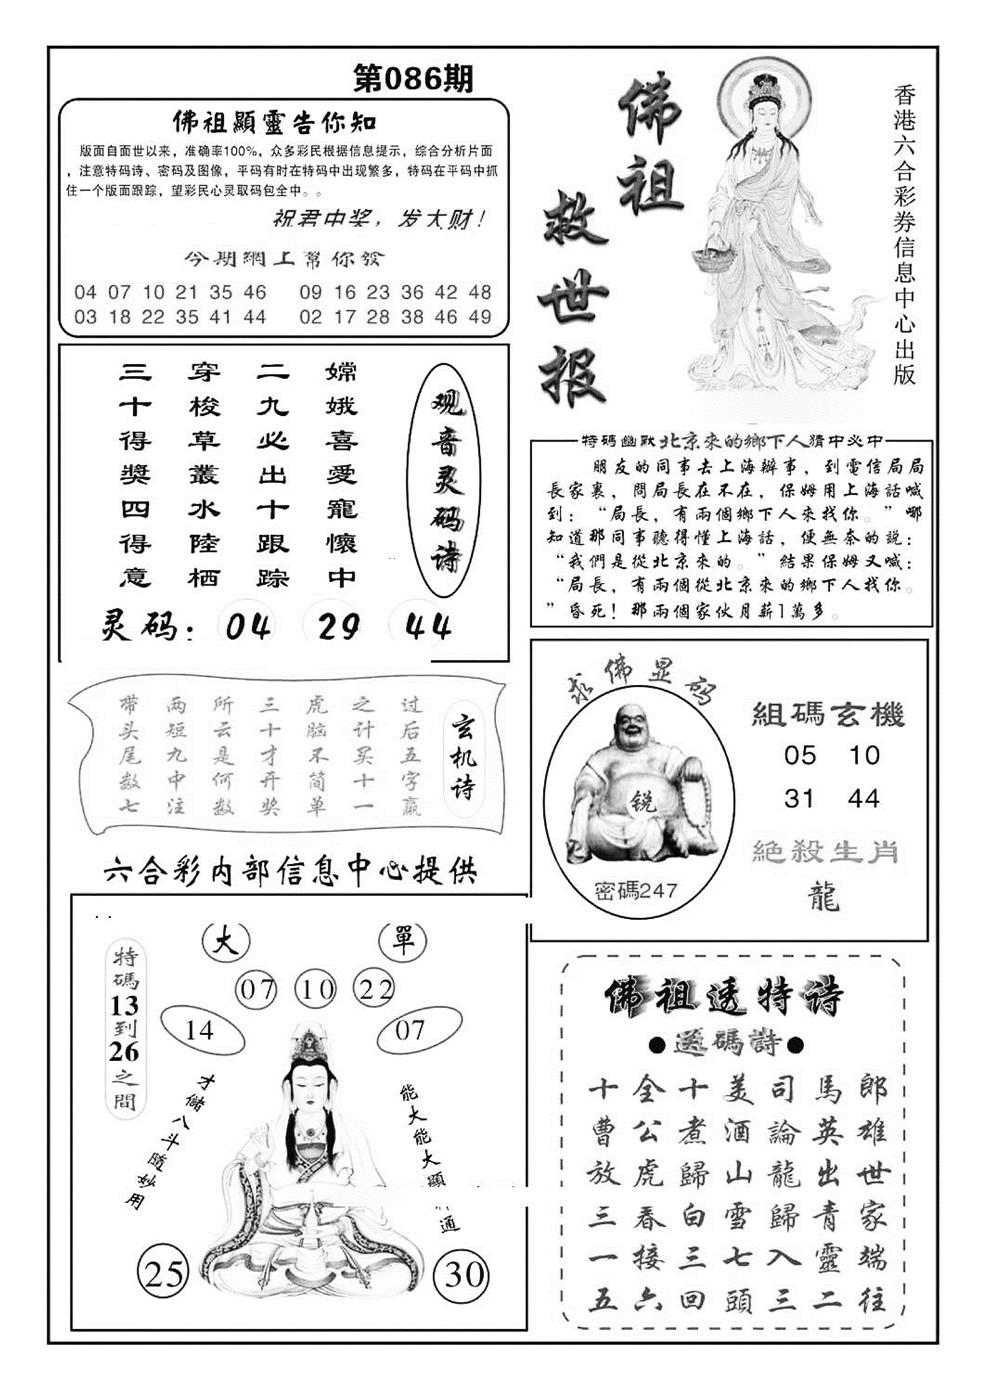 第086期
佛祖顯靈告你知
版面自面世以来，准确率100%，众多彩民根据信息提示，综合分析片面
，注意特码诗、密码及图像，平码有时在特码中出现繁多，特码在平码中抓
住一个版面跟踪，望彩民心灵取码包全中。。
祝君中奖，发大财！
今期網上幫你發
04 07 10 21 35 46 09 16 23 36 42 48
03 18 22 35 41 44 02 17 28 38 46 49
佛祖
救世报
香港六合彩券信息中心出版
观音灵码诗
嫦娥喜愛寵懷中
二九必出十跟踪
穿梭草叢水陸栖
三十得獎四得意
灵码：04 29 44
特碼幽默北京來的鄉下人猜中必中
朋友的同事去上海辦事，到電信局局
長家裏，問局長在不在，保姆用上海話喊
到：“局長，有兩個鄉下人來找你。”哪
知道那同事聽得懂上海話，便無奈的說：
“我們是從北京來的。”結果保姆又喊：
“局長，有兩個從北京來的鄉下人找你。
”昏死！那兩個家伙月薪1萬多。
玄机诗
过后五字赢
之计买十一
虎脑不简单
三十才开奖
所云是何数
两短九中注
带头尾数七
求佛显码
锐
密碼247
組碼玄機
05 10
31 44
絕殺生肖
龍
六合彩内部信息中心提供
大 單
07 10 22
14 07
特碼13到26之間
才儲八斗隨妙用
能大能大顯 通
25 30
佛祖透特诗
●透碼詩●
郎雄世家端往
馬英出青靈二
司論龍歸入三
美酒山雪七頭
十煮歸白三回
全公虎春接六
十曹放三一五